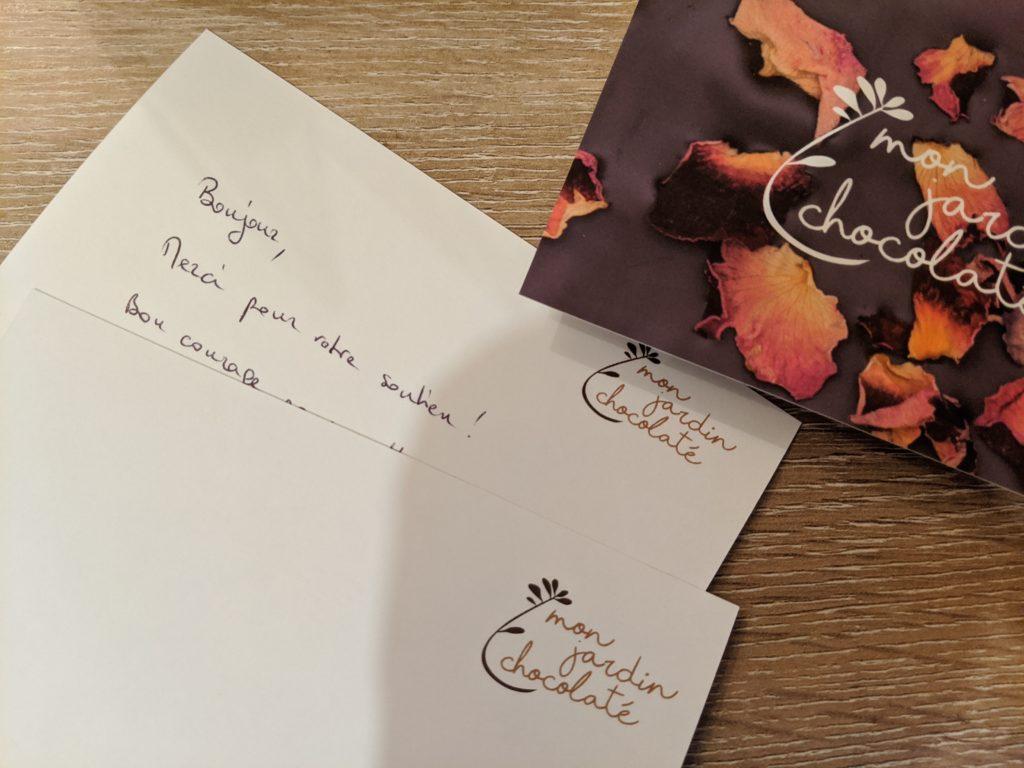 Bonjour,
Merci pour votre soutien !
Bon courage
mon
jardin
chocolaté
mon
jardin
chocolaté
mon
chocolat